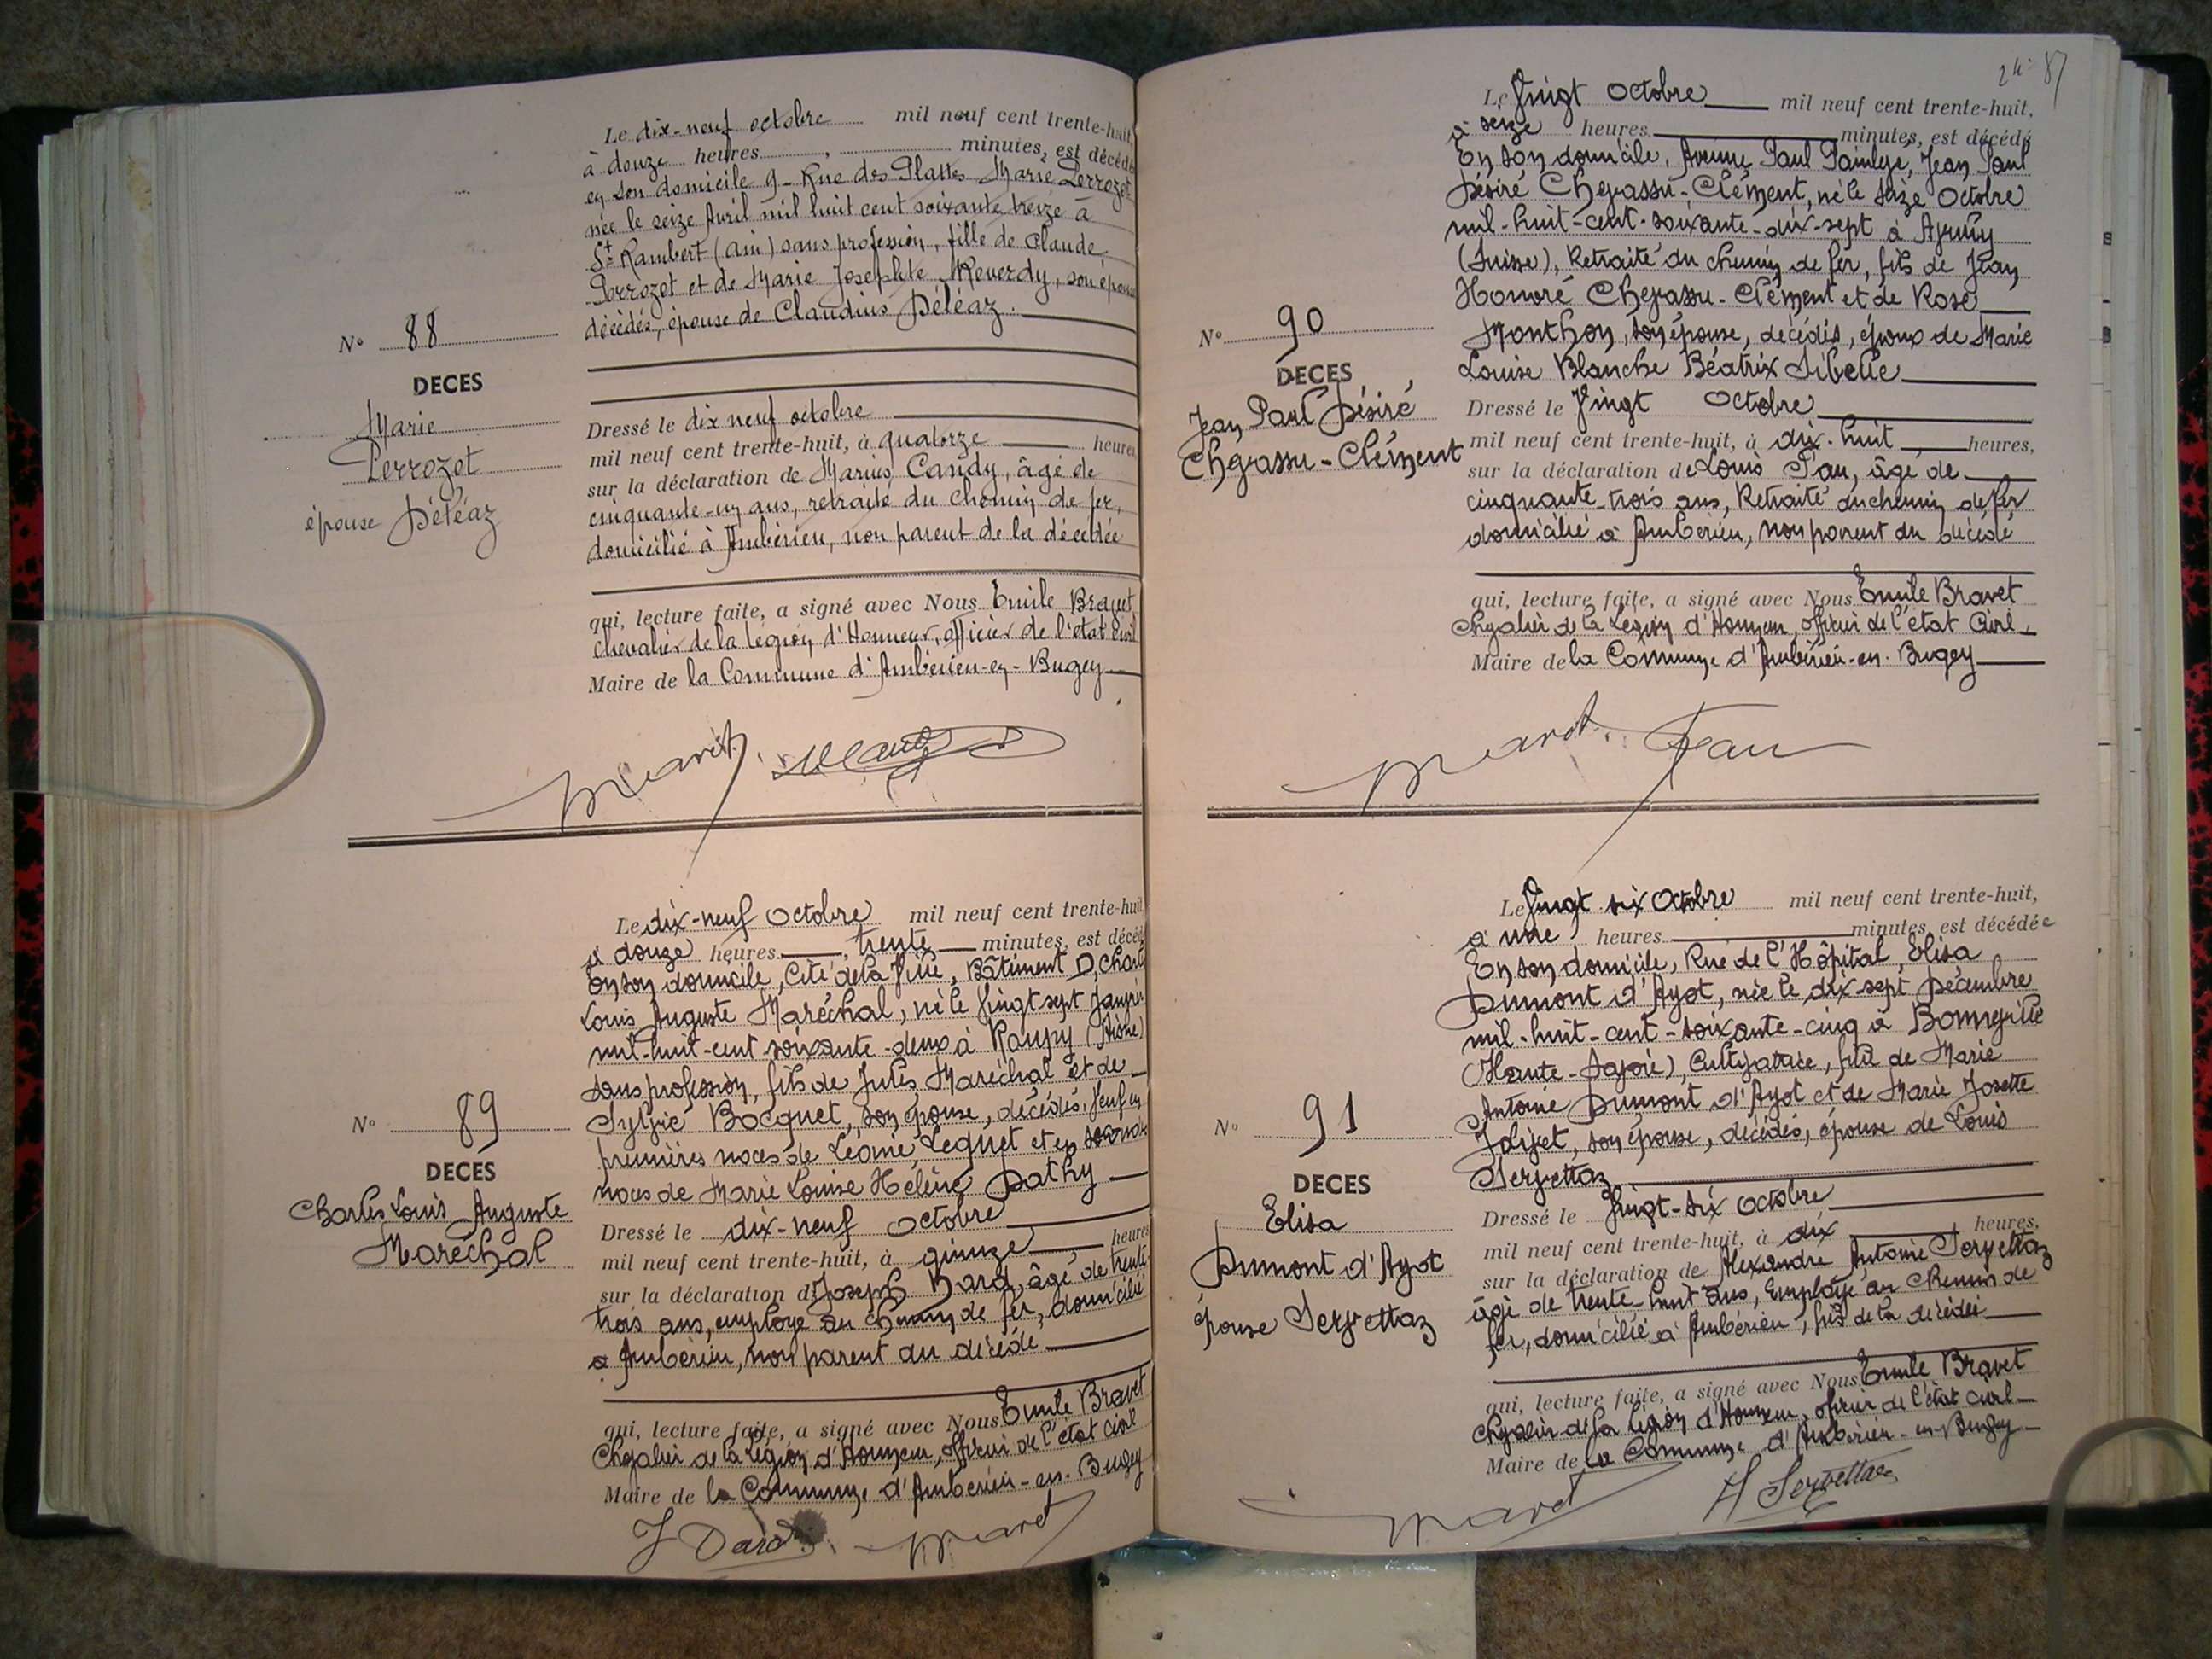 Le dix-neuf octobre mil neuf cent trente-huit,
à douze heures, minutes, est décédée
en son domicile 9 - Rue des Plattes Marie Perrozet
née le seize Avril mil huit cent soixante treize à
St Rambert (ain) sans profession, fille de Claude
Perrozet et de Marie Josephte Reverdy, son épouse
décédés, épouse de Claudius Déléaz.
No 88
DECES
Marie
Perrozet
épouse Déléaz
Dressé le dix neuf octobre
mil neuf cent trente-huit, à quatorze heures
sur la déclaration de Marius Candy, âgé de
cinquante-un ans, retraité du chemin de fer,
domicilié à Ambérieu, non parent de la décédée
qui, lecture faite, a signé avec Nous Emile Bravet
Chevalier de la Légion d'Honneur, officier de l'état civil
Maire de la Commune d'Ambérieu-en-Bugey
Le dix-neuf Octobre mil neuf cent trente-huit
à douze heures, trente minutes, est décédé
En son domicile, Cité de la Ville, Bâtiment D, Charles
Louis Auguste Maréchal, né le Vingt sept Janvier
mil-huit-cent soixante-deux à Raupy (Aisne)
sans profession, fils de Jules Maréchal et de
Sylvie Bocquet, son épouse, décédés, Veuf en
premières noces de Léonie Lequet et en secondes
noces de Marie Louise Hélène Dathy
No 89
DECES
Charles Louis Auguste
Maréchal
Dressé le dix-neuf Octobre
mil neuf cent trente-huit, à quinze heures
sur la déclaration de Joseph Dard, âgé de trente-
trois ans, employé au Chemin de fer, domicilié
à Ambérieu, non parent du décédé
qui, lecture faite, a signé avec Nous Emile Bravet
Chevalier de la Légion d'Honneur, officier de l'état civil
Maire de la Commune d'Ambérieu-en-Bugey
J Dard
87
Le Vingt Octobre mil neuf cent trente-huit,
à seize heures minutes, est décédé
En son domicile, Avenue Paul Painlevé, Jean Paul
Désiré Chevassu-Clément, né le seize Octobre
mil-huit-cent-soixante-dix-sept à
(Suisse), Retraité du chemin de fer, fils de Jean
Honoré Chevassu-Clément et de Rose
Monthon, son épouse, décédés, époux de Marie
Louise Blanche Béatrix Sibelle
No 90
DECES
Jean Paul Désiré
Chevassu-Clément
Dressé le Vingt Octobre
mil neuf cent trente-huit, à dix-huit heures,
sur la déclaration de Louis Pau, âgé de
cinquante-trois ans, Retraité du chemin de fer
domicilié à Ambérieu, non parent du décédé
qui, lecture faite, a signé avec Nous Emile Bravet
Chevalier de la Légion d'Honneur, officier de l'état Civil
Maire de la Commune d'Ambérieu-en-Bugey
Le Vingt six Octobre mil neuf cent trente-huit,
à une heures minutes, est décédée
En son domicile, Rue de l'Hôpital, Elisa
Dumont d'Ayot, née le dix sept Décembre
mil-huit-cent-soixante-cinq à Bonneville
(Haute-Savoie), Cultivatrice, fille de Marie
Antoine Dumont d'Ayot et de Marie Josette
Jolivet, son épouse, décédés, épouse de Louis
Servettaz
No 91
DECES
Elisa
Dumont d'Ayot
épouse Servettaz
Dressé le Vingt-six Octobre
mil neuf cent trente-huit, à dix heures,
sur la déclaration de Alexandre Antoine Servettaz
âgé de trente-huit ans, Employé au Chemin de
fer, domicilié à Ambérieu, fils de la décédée
qui, lecture faite, a signé avec Nous Emile Bravet
Chevalier de la Légion d'Honneur, officier de l'état civil
Maire de la Commune d'Ambérieu-en-Bugey
A Servettaz